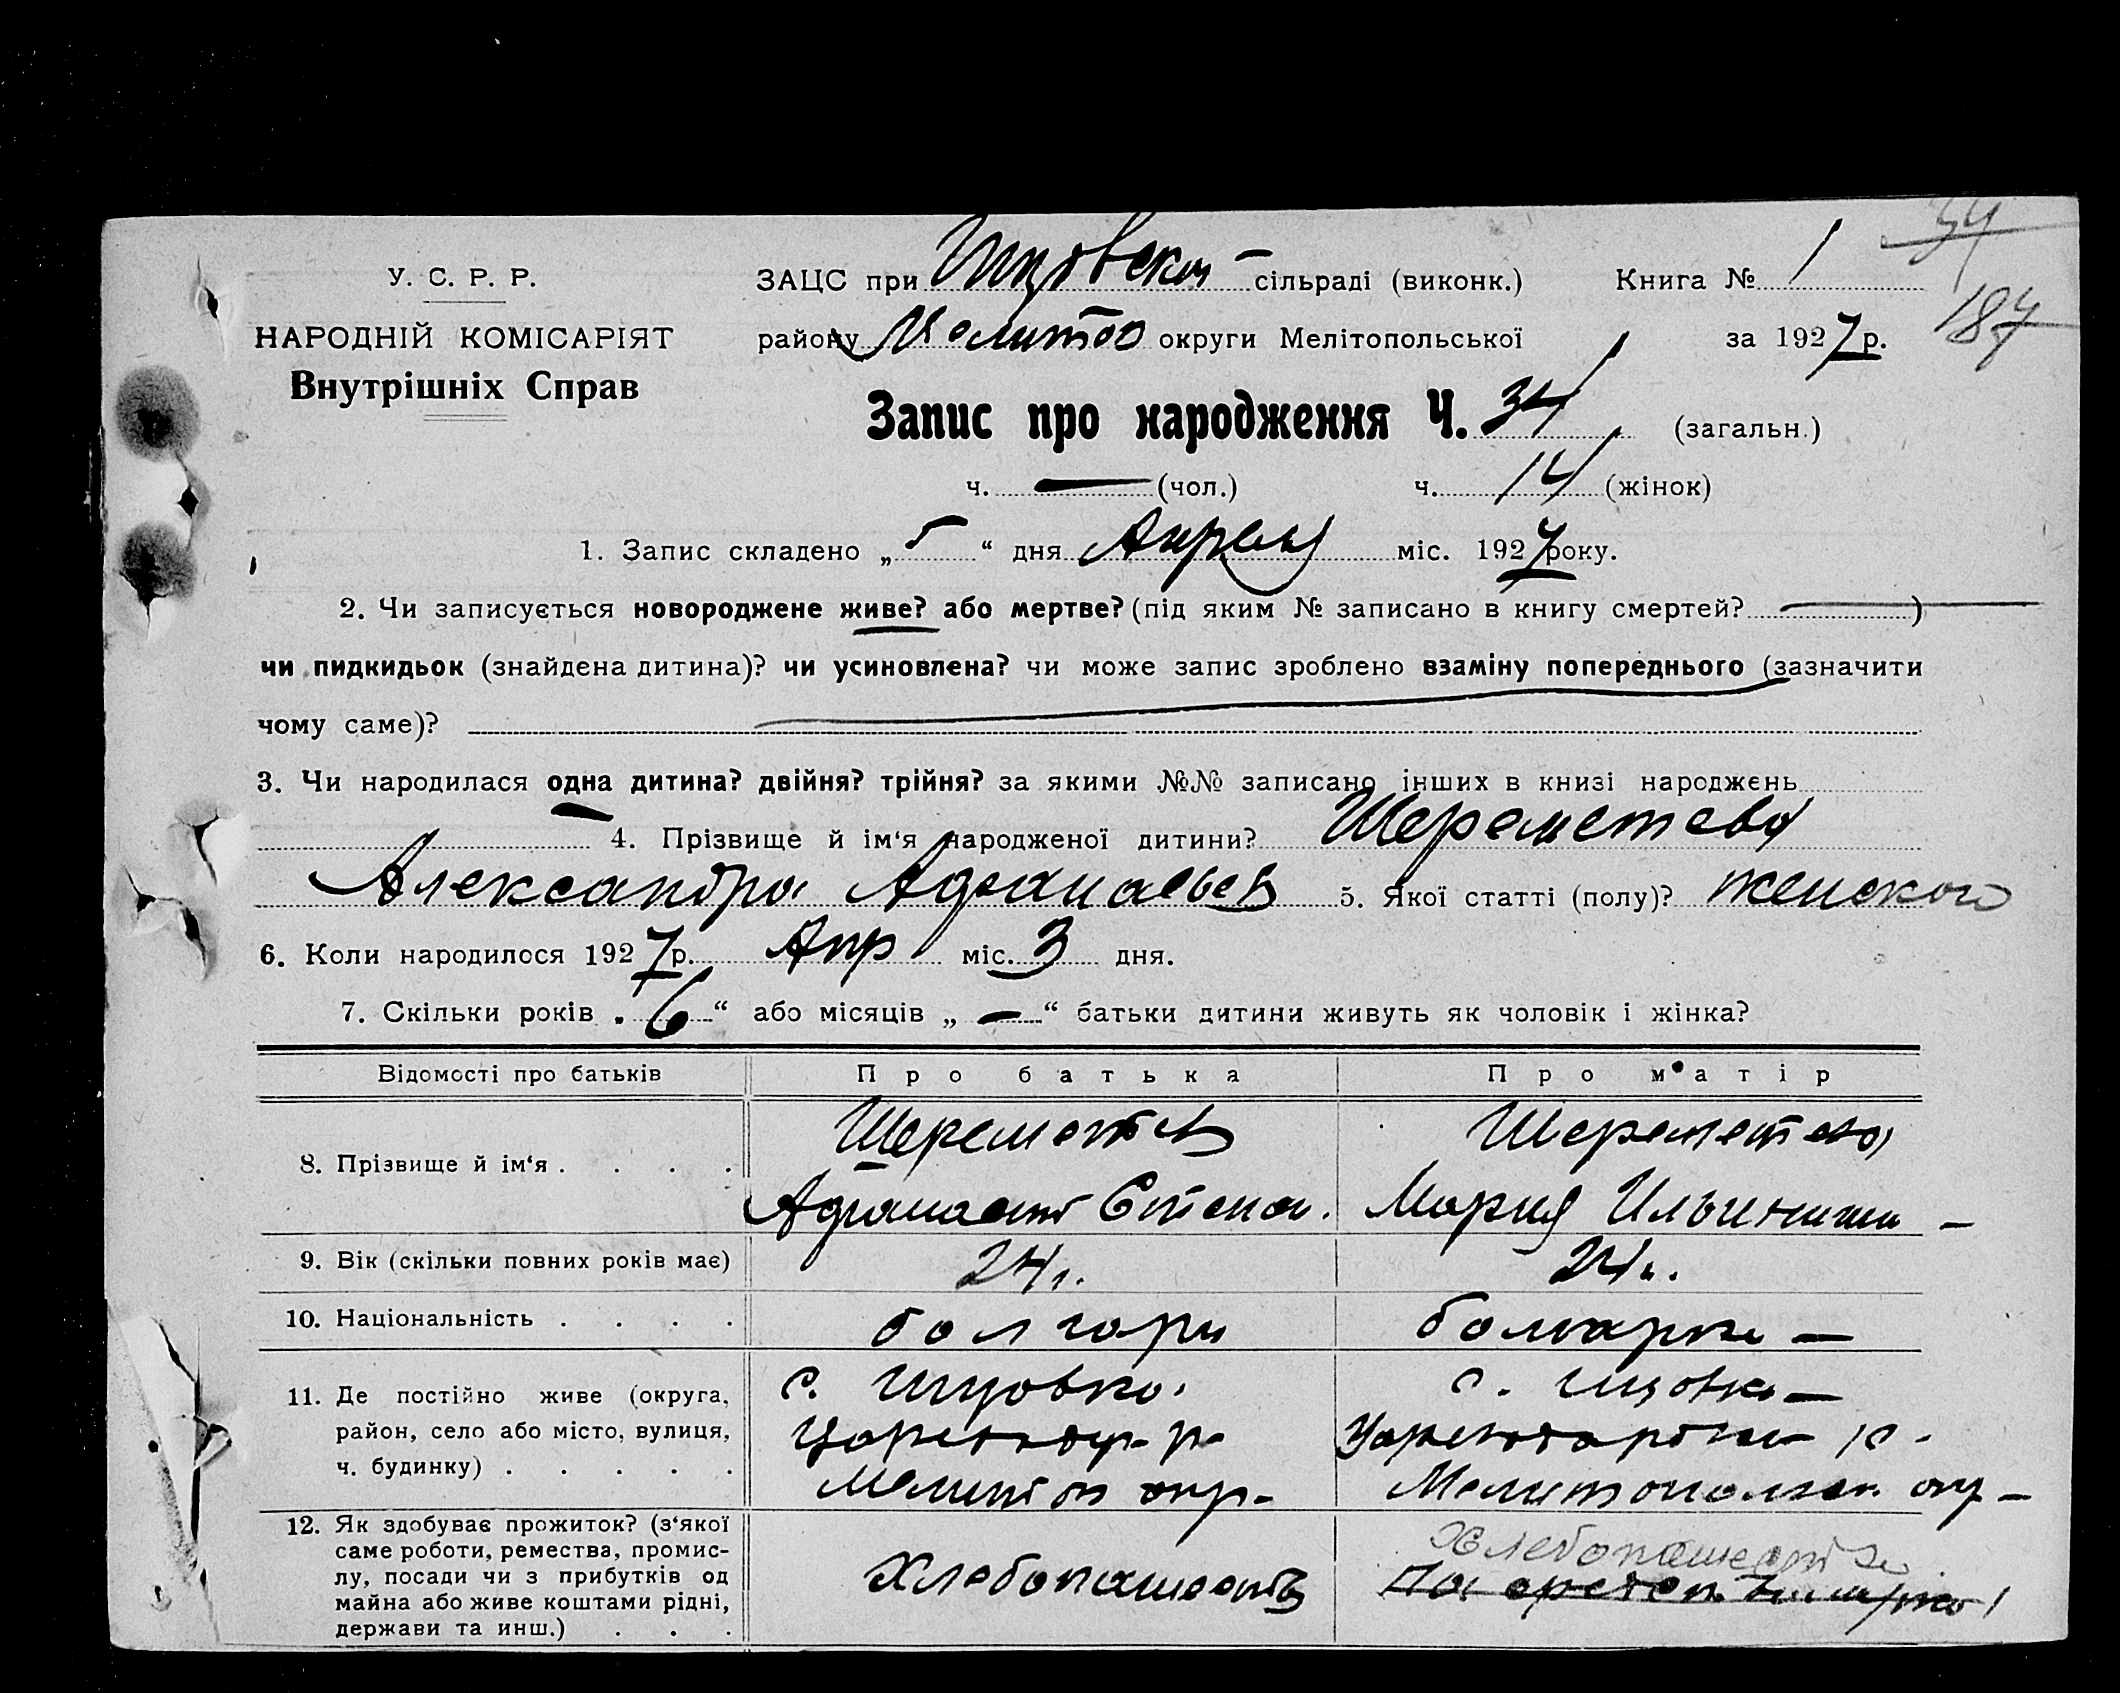 34
У. С. Р. Р. ЗАЦС при сільраді (виконк.) Книга № 1
187
НАРОДНІЙ КОМІСАРІЯТ району Мелитоп округи Мелітопольської за 1927 р.
Внутрішніх Справ
Запис про народження Ч. 34 (загальн.)
ч. — (чол.) ч. 14 (жінок)
1. Запис складено „5“ дня міс. 1927 року.
2. Чи записується новороджене живе? або мертве? (під яким № записано в книгу смертей? —)
чи пидкидьок (знайдена дитина)? чи усиновлена? чи може запис зроблено взаміну попереднього (зазначити
чому саме)?
3. Чи народилася одна дитина? двійня? трійня? за якими №№ записано інших в книзі народжень
4. Прізвище й ім‘я народженої дитини? Шереметева
Александра 5. Якої статті (полу)? женского
6. Коли народилося 1927 р. Апр міс. 3 дня.
7. Скільки років „6“ або місяців „—“ батьки дитини живуть як чоловік і жінка?
Відомості про батьків Про батька Про матір
8. Прізвище й ім‘я . . . . Шереметев Шереметева
Афанасий Степан. Мария Ильинична
9. Вік (скільки повних років має) 24 г. 24 г.
10. Національність . . . . болгары болгарка —
11. Де постійно живе (округа, с. с.
район, село або місто, вулиця,
ч. будинку) . . . . . Мелитоп окр-
12. Як здобуває прожиток? (з‘якої
саме роботи, ремества, промис-
лу, посади чи з прибутків од Хлебопашество
майна або живе коштами рідні,
держави та инш.) . . .